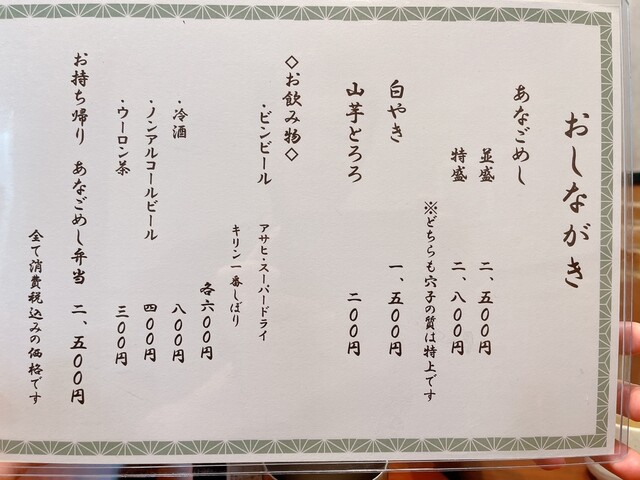 おしながき
あなごめし
並盛 二、五〇〇円
特盛 二、八〇〇円
※どちらも穴子の質は特上です
白やき 一、五〇〇円
山芋とろろ 二〇〇円
◇お飲み物◇
・ビンビール アサヒ・スーパードライ
キリン一番しぼり
各六〇〇円
・冷酒 八〇〇円
・ノンアルコールビール 四〇〇円
・ウーロン茶 三〇〇円
お持ち帰り あなごめし弁当 二、五〇〇円
全て消費税込みの価格です